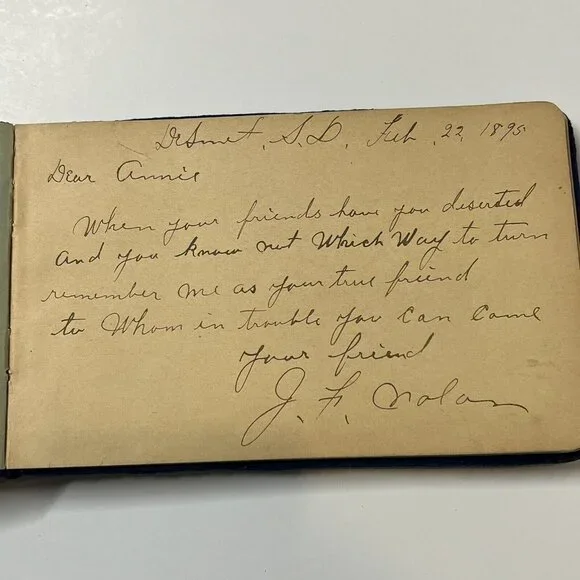 DeSmet, S.D, Feb, 22, 1895
Dear Annie
When your friends have you deserted
And you know not Which Way to turn
remember me as your true friend
to Whom in trouble you can Come
Your friend
J. F. Nolan